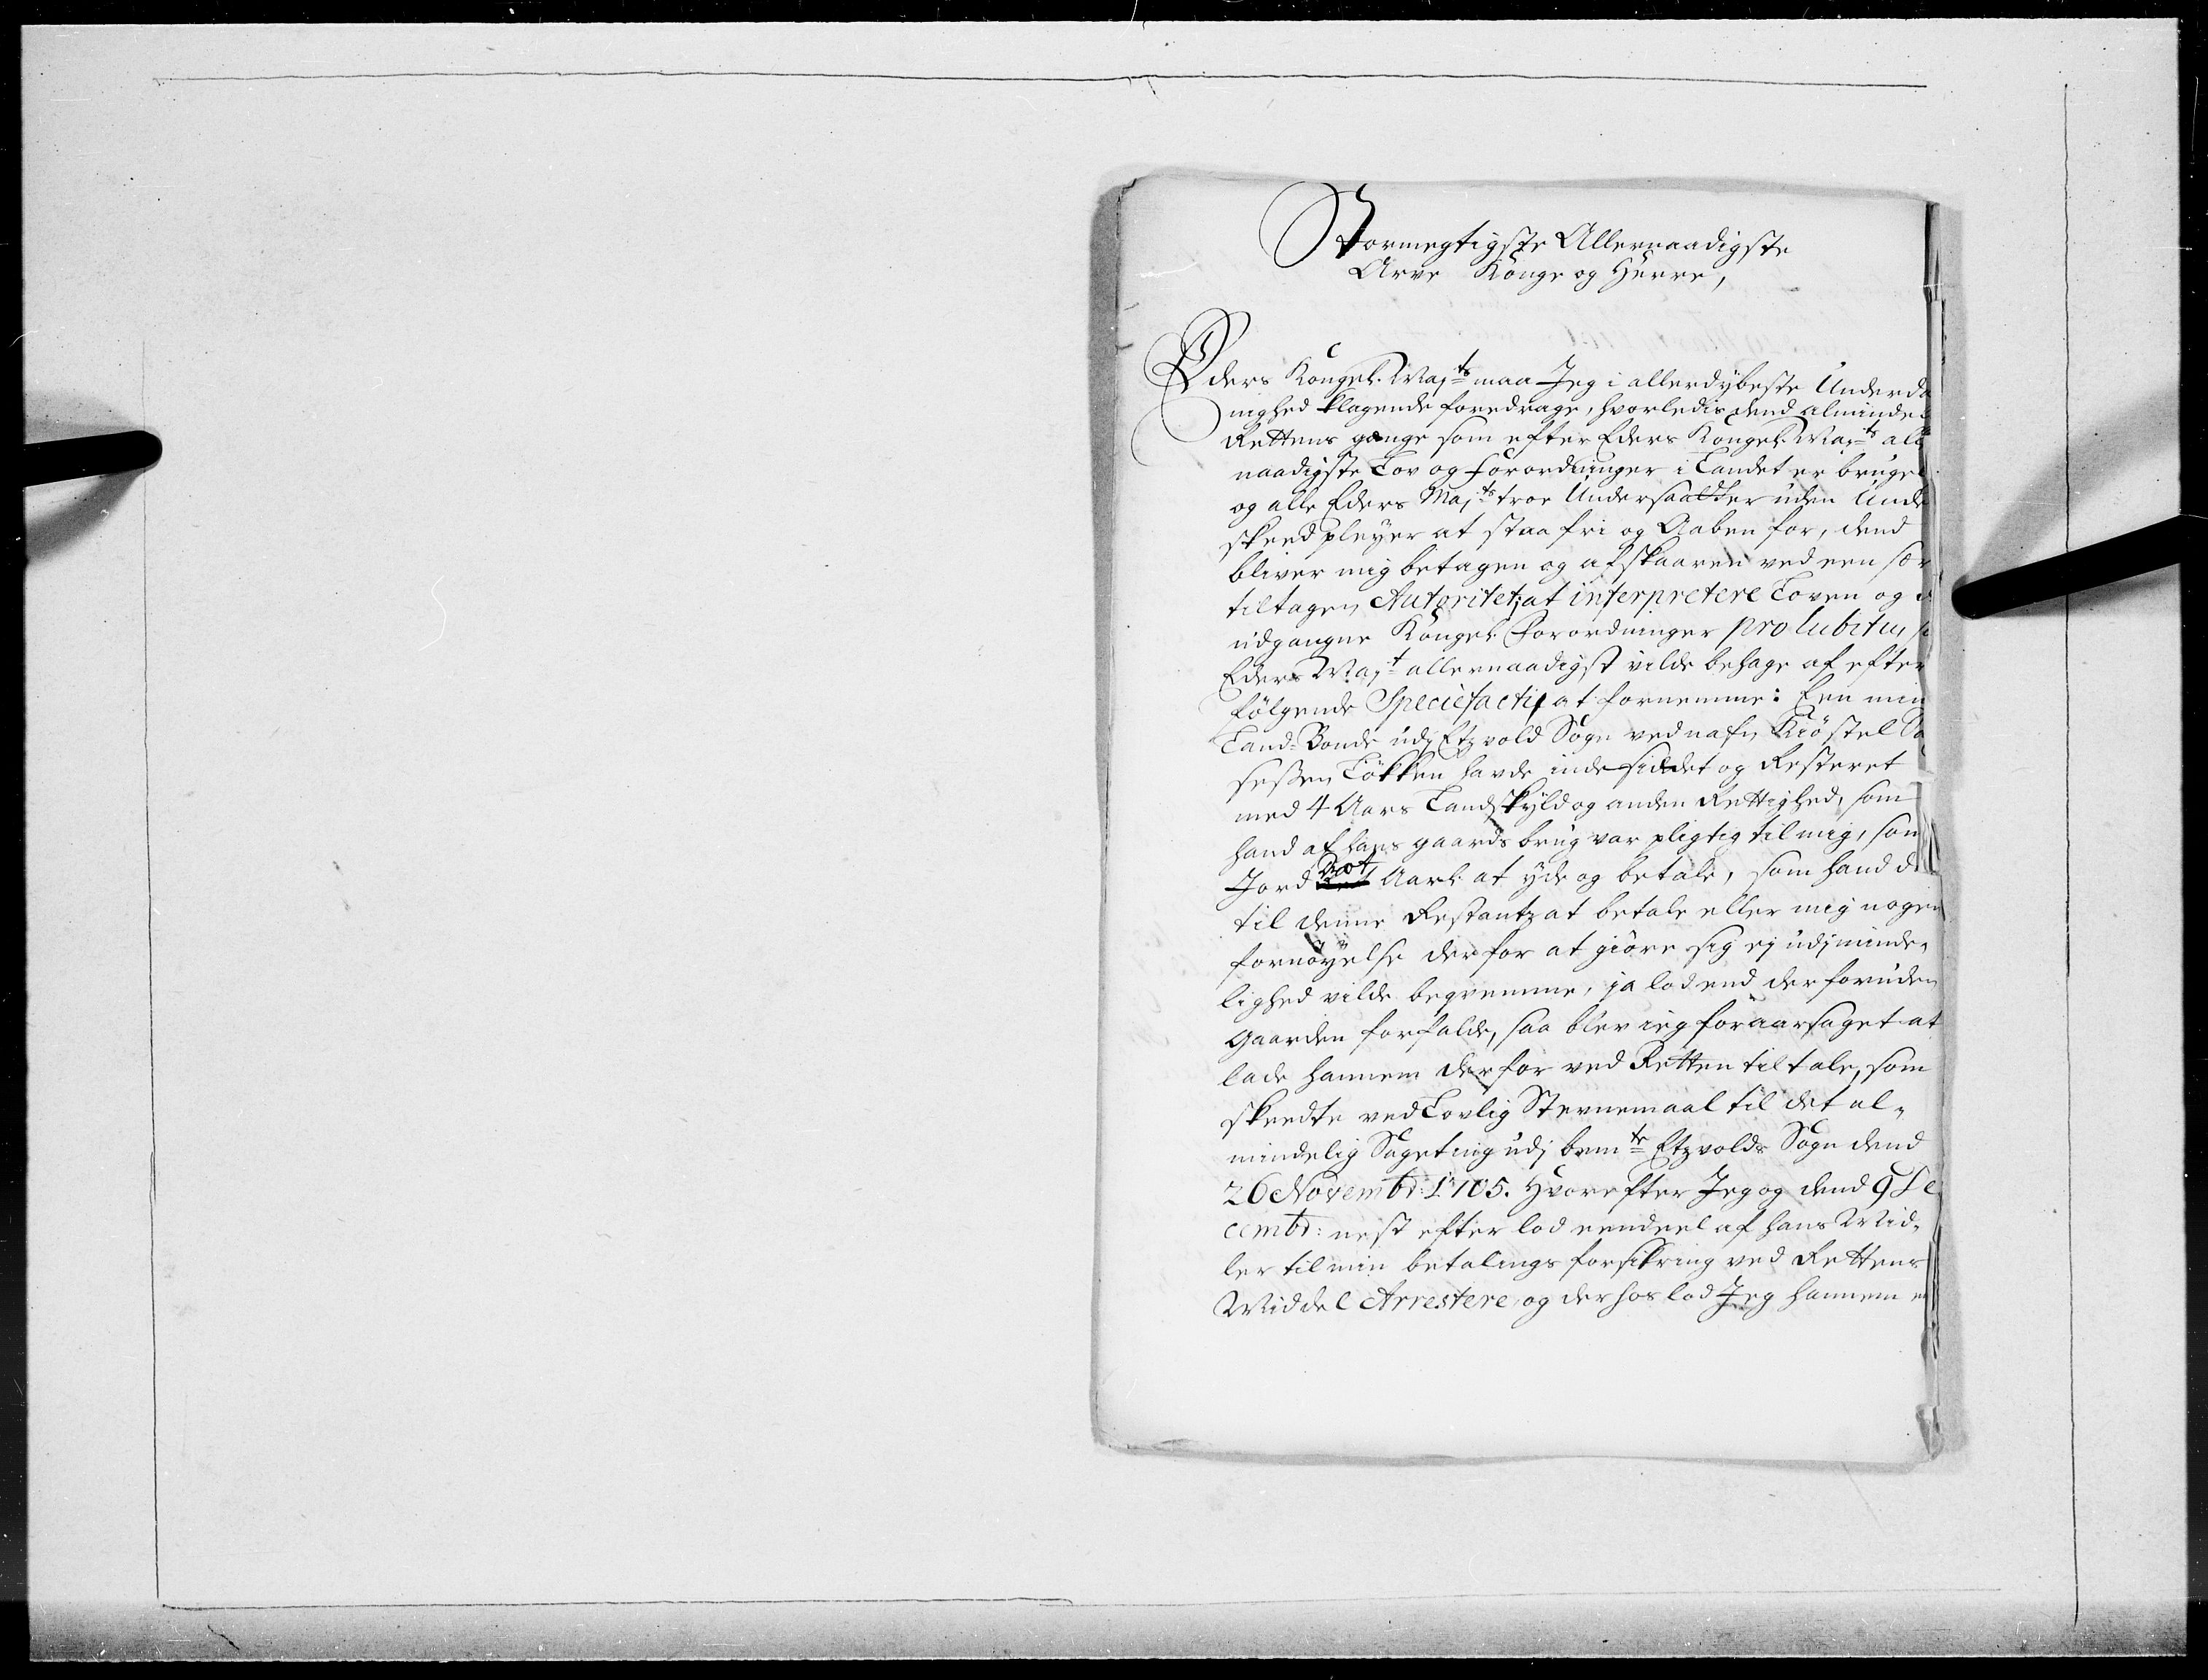 Stormegtigste Allernaadigste
Arve Konge og Herre,
Eders Kongel. Maj:ts maa Jeg i allerdybeste Underda
nighed klagende foredrage, hvorledis dend almindel
Rettens gange som efter Eders Kongel. Maj:ts all
naadigste Lov og forordninger i Landet er bruge
og alle Eders Maj:ts troe Undersaatter uden Unde
skeed pleyer at staa fri og Aaben for, dend
bliver mig betagen og afskaaren ved een sær
tiltagen Autoritet, at interpretere Loven og
udgangne Kongel. Forordninger pro lubitu, s
Eders Maj:t allernaadigst vilde behage af efter
følgende Speciefacti, at fornemme: Een min
Land-Bonde udj Etzvold Sogn ved nafn Kiøstel
Løkken hafde indesiddet og Resteret
med 4 Aars Landskyld og anden Rettighed, som
hand af hans gaards brug var pligtig til mig, som
Jord Rot Aarl. at yde og betale, som hand d
til denne Restantz at betale eller mig nogen
fornøyelse derfor at giøre sig ej udj minde-
lighed vilde beqvemme, ja lod end der foruden
Gaarden forfalde, saa blev ieg foraarsaget at
lade hannem derfor ved Retten tiltale, som
skeedte ved Lovlig Stevnemaal til det al-
mindelig Sageting udj bem:te Etzvolds Sogn dend
26 Novembr: 1705. Hvorefter Jeg og dend 9 De
cembr: nest efter lod eendeel af hans Mid-
ler til min betalings forsikring ved Rettens
Middel Arrestere, og derhos lod Jeg hannem